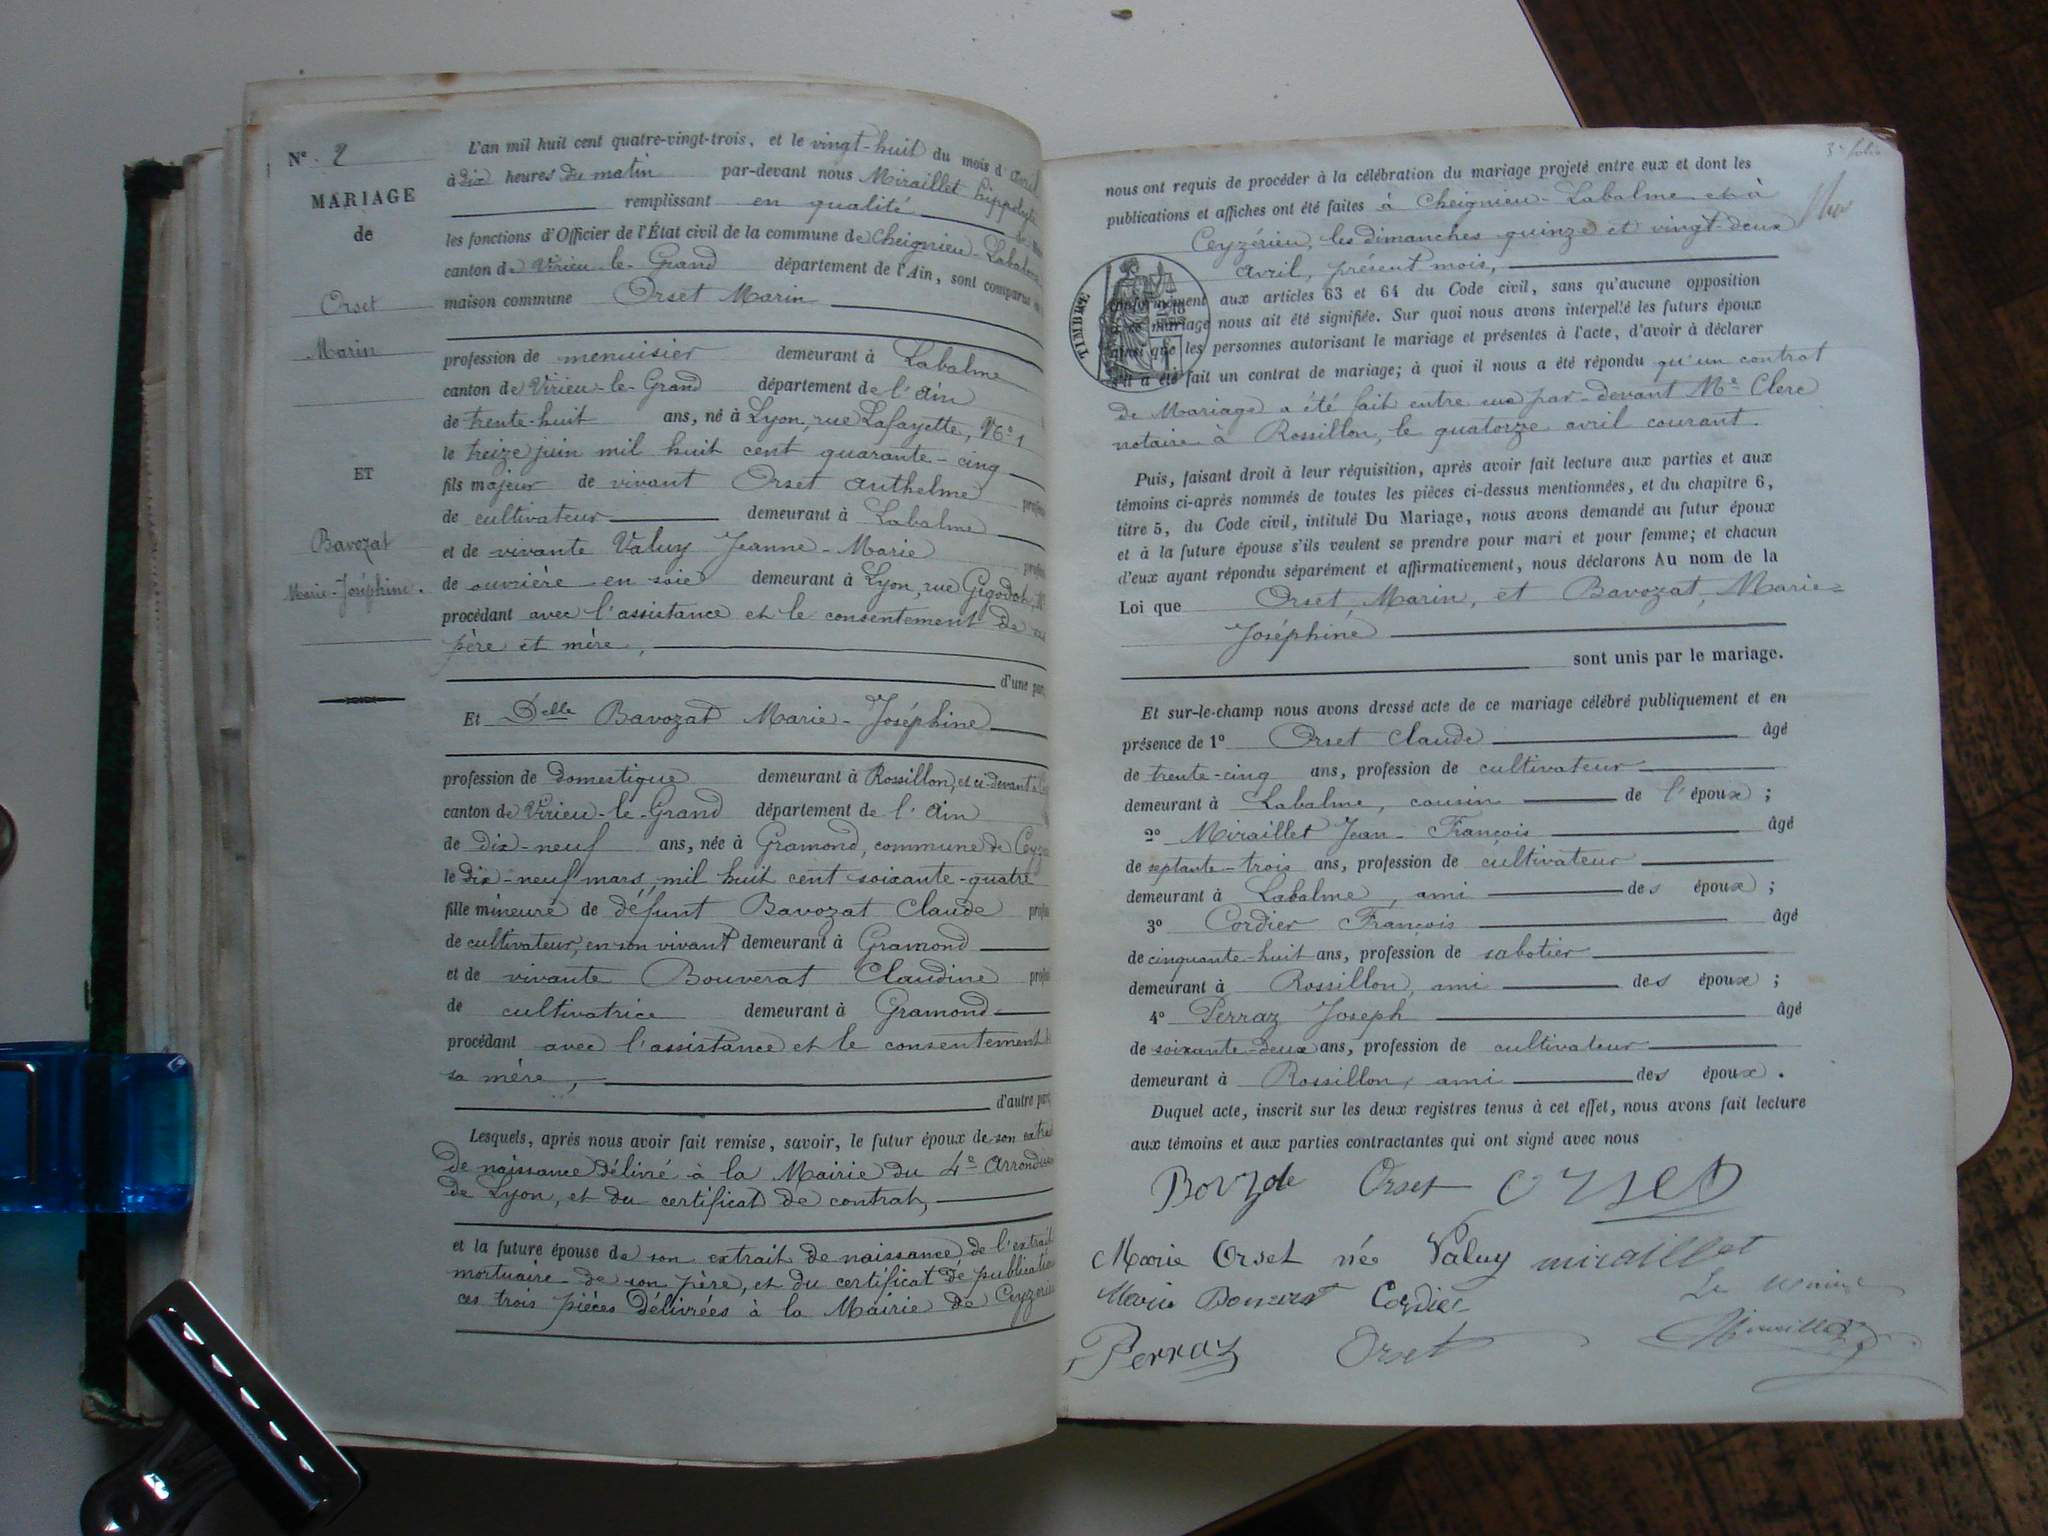 N° 2
MARIAGE
de
Orset
Marin
ET
Bavozat
Marie-Joséphine.
L'an mil huit cent quatre-vingt-trois, et le vingt-huit du mois d'avril
à dix heures du matin par-devant nous Miraillet hippolyte
remplissant en qualité
les fonctions d'Officier de l'État civil de la commune de Cheignieu-Labalme
canton de Virieu-le-Grand département de l'Ain, sont comparus
maison commune Orset Marin
profession de menuisier demeurant à Labalme
canton de Virieu-le-Grand département de l'ain
de trente-huit ans, né à Lyon, rue Lafayette, N° 1
le treize juin mil huit cent quarante-cinq
fils majeur de vivant Orset anthelme
de cultivateur demeurant à Labalme
et de vivante Valuy Jeanne-Marie
de ouvrière en soie demeurant à Lyon, rue Gigodot,
procédant avec l'assistance et le consentement de
père et mère,
d'une part
Et Delle Bavozat Marie-Joséphine
profession de domestique demeurant à Rossillon, et ci-devant
canton de Virieu-le-Grand département de l'ain
de dix-neuf ans, née à Gramond, commune de
le dix-neuf mars mil huit cent soixante-quatre
fille mineure de défunt Bavozat Claude
de cultivateur, en son vivant demeurant à Gramond
et de vivante Bouverat Claudine
de cultivatrice demeurant à Gramond
procédant avec l'assistance et le consentement
sa mère,
d'autre part
Lesquels, après nous avoir fait remise, savoir, le futur époux de son
de naissance délivré à la Mairie du 4e
de Lyon, et du certificat de contrat,
et la future épouse de son extrait de naissance, de l'extrait
mortuaire de son père, et du certificat de publication
ces trois pièces délivrées à la Mairie de Ceyzérieu
3e folio
nous ont requis de procéder à la célébration du mariage projeté entre eux et dont les
publications et affiches ont été faites à Cheignieu-Labalme et à
Ceyzérieu, les dimanches quinze et vingt-deux
avril, présent mois,
TIMBRE
conformément aux articles 63 et 64 du Code civil, sans qu'aucune opposition
à ce mariage nous ait été signifiée. Sur quoi nous avons interpellé les futurs époux
ainsi que les personnes autorisant le mariage et présentes à l'acte, d'avoir à déclarer
s'il a été fait un contrat de mariage; à quoi il nous a été répondu qu'un contrat
de Mariage a été fait entre eux par-devant Me Clerc
notaire à Rossillon, le quatorze avril courant.
Puis, faisant droit à leur réquisition, après avoir fait lecture aux parties et aux
témoins ci-après nommés de toutes les pièces ci-dessus mentionnées, et du chapitre 6,
titre 5, du Code civil, intitulé Du Mariage, nous avons demandé au futur époux
et à la future épouse s'ils veulent se prendre pour mari et pour femme; et chacun
d'eux ayant répondu séparément et affirmativement, nous déclarons Au nom de la
Loi que Orset, Marin, et Bavozat, Marie-
Joséphine
sont unis par le mariage.
Et sur-le-champ nous avons dressé acte de ce mariage célébré publiquement et en
présence de 1° Orset Claude âgé
de trente-cinq ans, profession de cultivateur
demeurant à Labalme, cousin de l'époux;
2° Miraillet Jean-François âgé
de septante-trois ans, profession de cultivateur
demeurant à Labalme, ami des époux;
3° Cordier François âgé
de cinquante-huit ans, profession de sabotier
demeurant à Rossillon, ami des époux;
4° Perraz Joseph âgé
de soixante-deux ans, profession de cultivateur
demeurant à Rossillon, ami des époux.
Duquel acte, inscrit sur les deux registres tenus à cet effet, nous avons fait lecture
aux témoins et aux parties contractantes qui ont signé avec nous
Orset orset
Marie Orset née Valuy miraillet
Le maire
Marie Cordier
Perraz Orset Miraillet